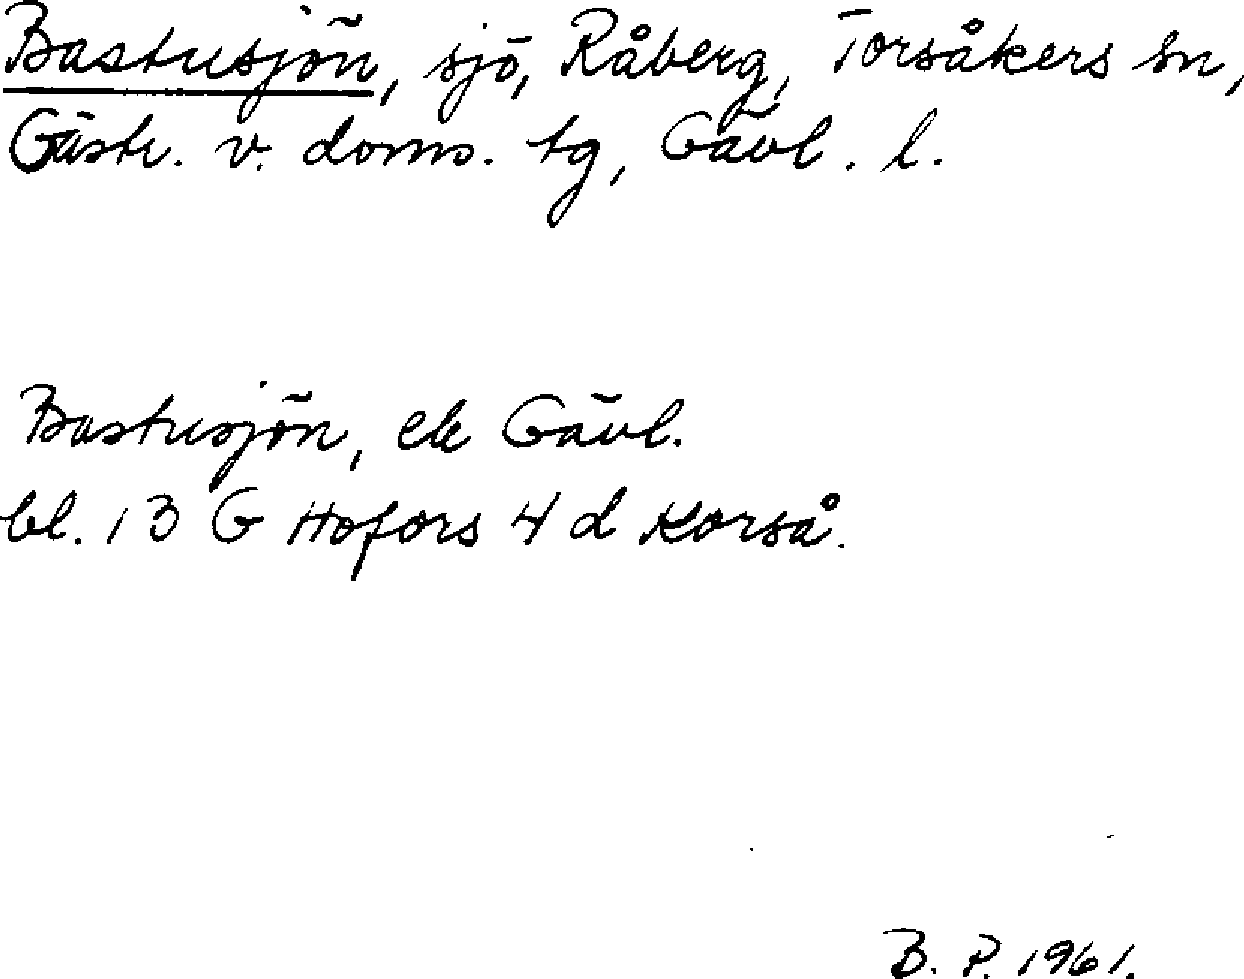 Bastusjön, sjö, Råberg, Torsåkers sn,
Gästr. v. doms. tg, Gävl. l.
Bastusjön, ek Gävl.
bl. 13 G Hofors 4 d Korså.
B. P. 1961.